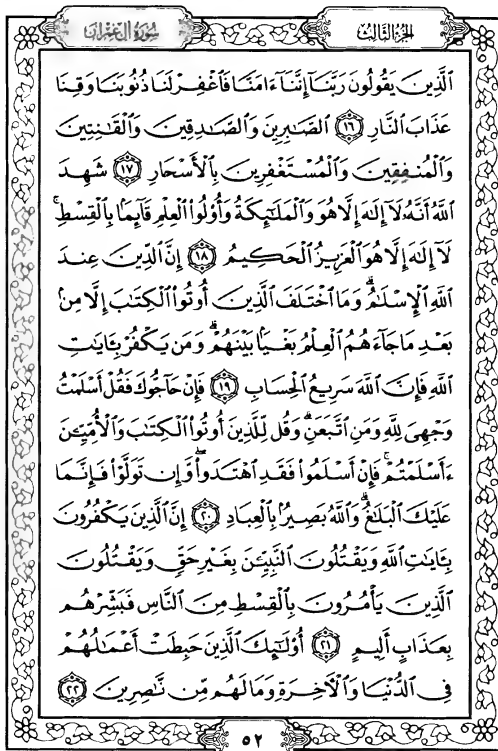 سُورَةُ آلِ عِمْرَانَ
الجزء الثالث
ٱلَّذِينَ يَقُولُونَ رَبَّنَآ إِنَّنَآ ءَامَنَّا فَٱغْفِرْ لَنَا ذُنُوبَنَا وَقِنَا
عَذَابَ ٱلنَّارِ ١٦ ٱلصَّٰبِرِينَ وَٱلصَّٰدِقِينَ وَٱلْقَٰنِتِينَ
وَٱلْمُنفِقِينَ وَٱلْمُسْتَغْفِرِينَ بِٱلْأَسْحَارِ ١٧ شَهِدَ
ٱللَّهُ أَنَّهُۥ لَآ إِلَٰهَ إِلَّا هُوَ وَٱلْمَلَٰٓئِكَةُ وَأُو۟لُوا۟ ٱلْعِلْمِ قَآئِمًۢا بِٱلْقِسْطِ ۚ
لَآ إِلَٰهَ إِلَّا هُوَ ٱلْعَزِيزُ ٱلْحَكِيمُ ١٨ إِنَّ ٱلدِّينَ عِندَ
ٱللَّهِ ٱلْإِسْلَٰمُ ۗ وَمَا ٱخْتَلَفَ ٱلَّذِينَ أُوتُوا۟ ٱلْكِتَٰبَ إِلَّا مِنۢ
بَعْدِ مَا جَآءَهُمُ ٱلْعِلْمُ بَغْيًۢا بَيْنَهُمْ ۗ وَمَن يَكْفُرْ بِـَٔايَٰتِ
ٱللَّهِ فَإِنَّ ٱللَّهَ سَرِيعُ ٱلْحِسَابِ ١٩ فَإِنْ حَآجُّوكَ فَقُلْ أَسْلَمْتُ
وَجْهِىَ لِلَّهِ وَمَنِ ٱتَّبَعَنِ ۗ وَقُل لِّلَّذِينَ أُوتُوا۟ ٱلْكِتَٰبَ وَٱلْأُمِّيِّـۧنَ
ءَأَسْلَمْتُمْ ۚ فَإِنْ أَسْلَمُوا۟ فَقَدِ ٱهْتَدَوا۟ ۖ وَّإِن تَوَلَّوْا۟ فَإِنَّمَا
عَلَيْكَ ٱلْبَلَٰغُ ۗ وَٱللَّهُ بَصِيرٌۢ بِٱلْعِبَادِ ٢٠ إِنَّ ٱلَّذِينَ يَكْفُرُونَ
بِـَٔايَٰتِ ٱللَّهِ وَيَقْتُلُونَ ٱلنَّبِيِّـۧنَ بِغَيْرِ حَقٍّ وَيَقْتُلُونَ
ٱلَّذِينَ يَأْمُرُونَ بِٱلْقِسْطِ مِنَ ٱلنَّاسِ فَبَشِّرْهُم
بِعَذَابٍ أَلِيمٍ ٢١ أُو۟لَٰٓئِكَ ٱلَّذِينَ حَبِطَتْ أَعْمَٰلُهُمْ
فِى ٱلدُّنْيَا وَٱلْءَاخِرَةِ وَمَا لَهُم مِّن نَّٰصِرِينَ ٢٢
٥٢